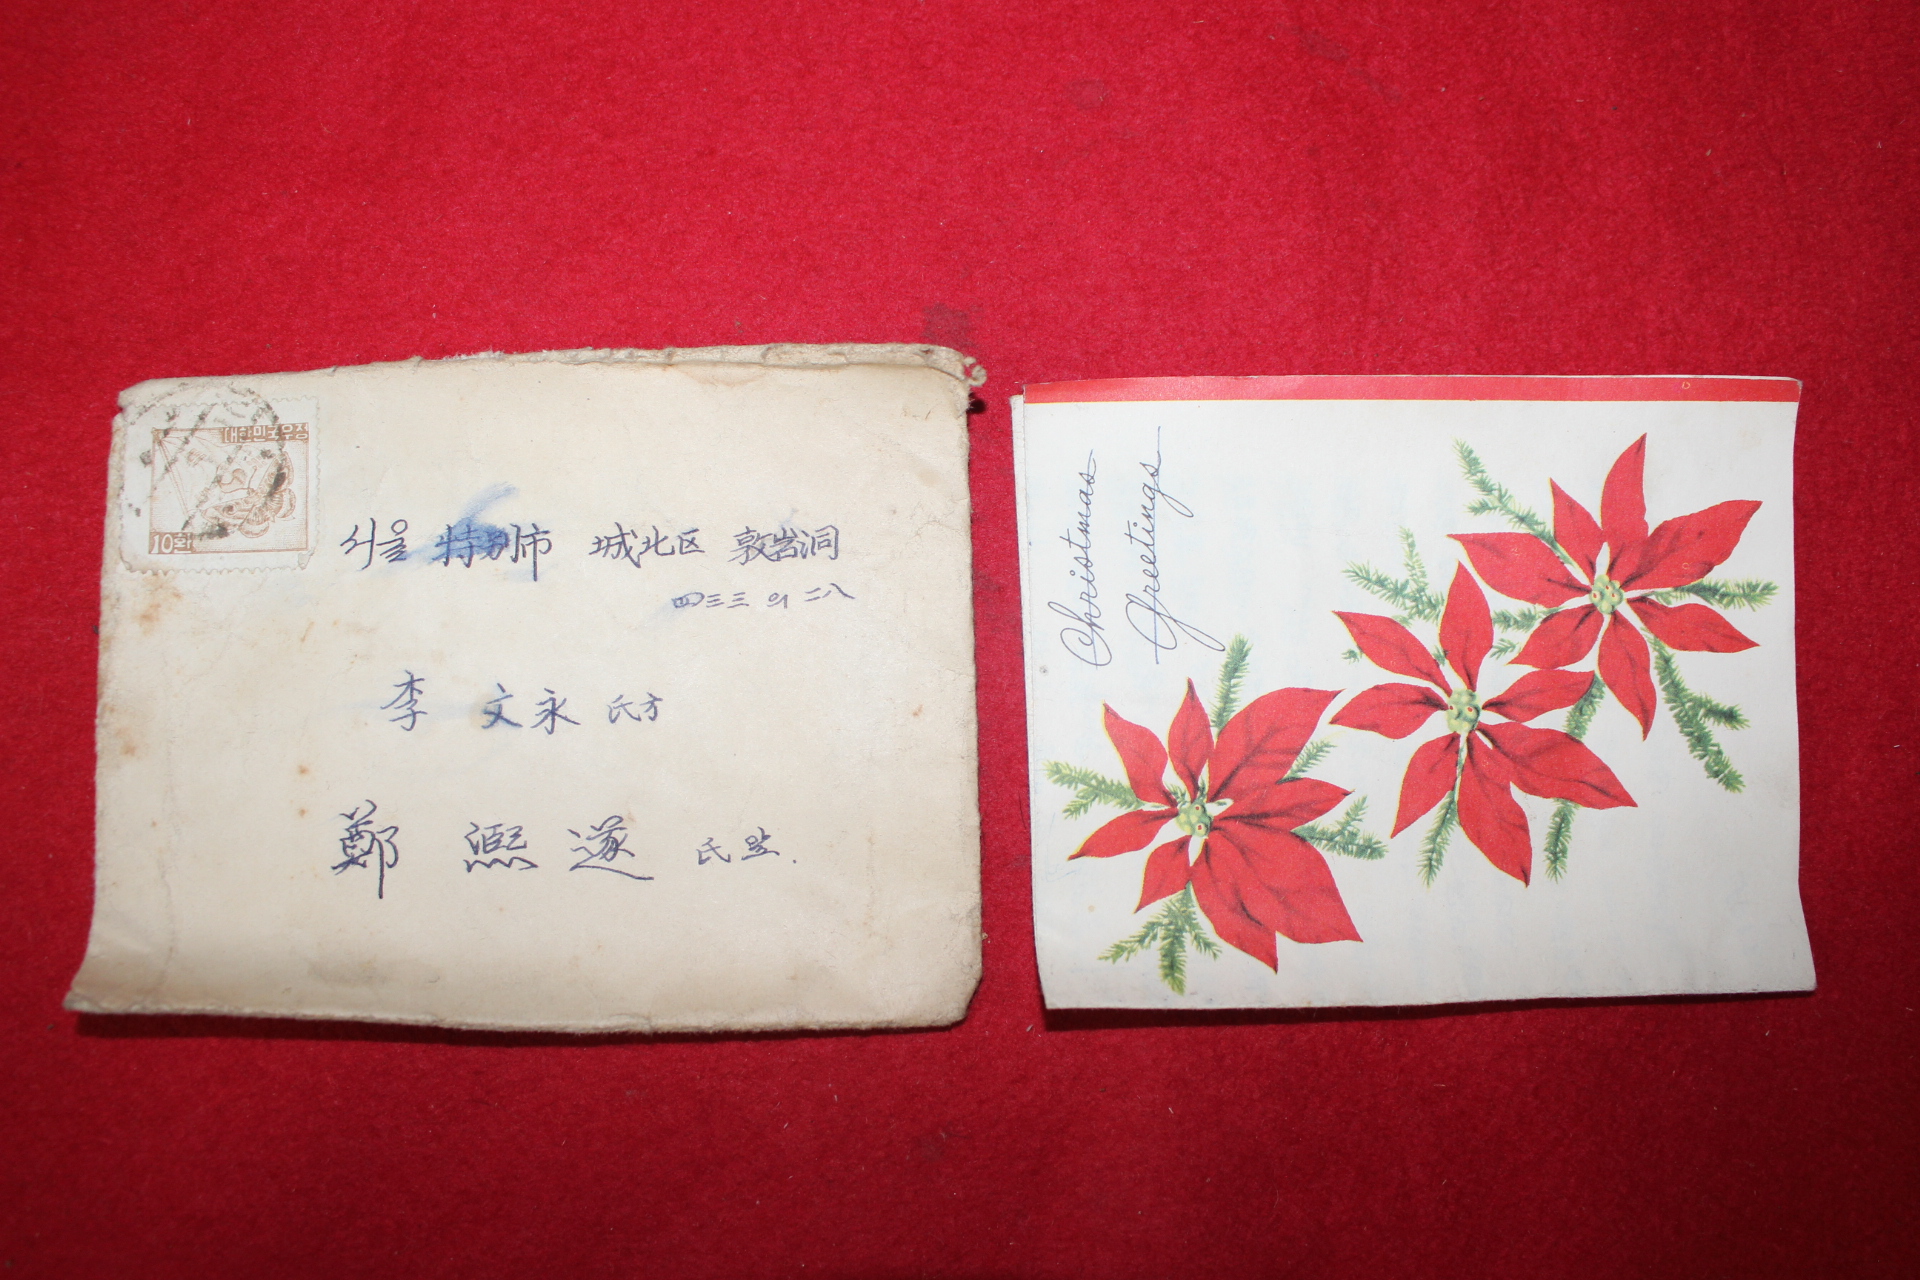 대한민국우정
10환
서울 特別市 城北区 敦岩洞
四三三 의 二八
李 文永 氏方
鄭 熙遂 氏앞.
Christmas
Greetings